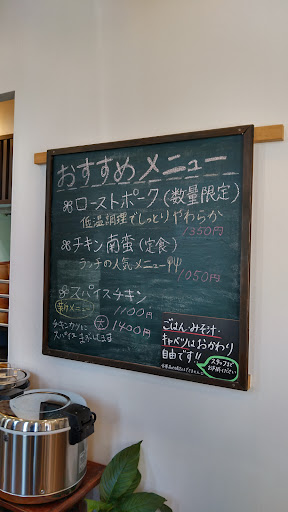 おすすめメニュー
ローストポーク(数量限定)
低温調理でしっとりやわらか
1350円
チキン南蛮(定食)
ランチの人気メニュー
1050円
スパイスチキン
新メニュー
1100円
大 1400円
チキンカツに
スパイス
ごはん・みそ汁・
キャベツはおかわり
自由です!!
スタッフまで
お声掛けください